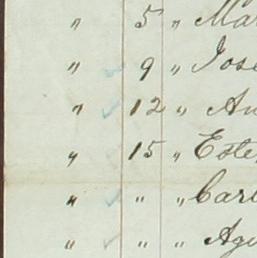 " 5 " Ma
" 9 " Jose
" 12 " An
" 15 " Este
" " " Carl
" " " Agu